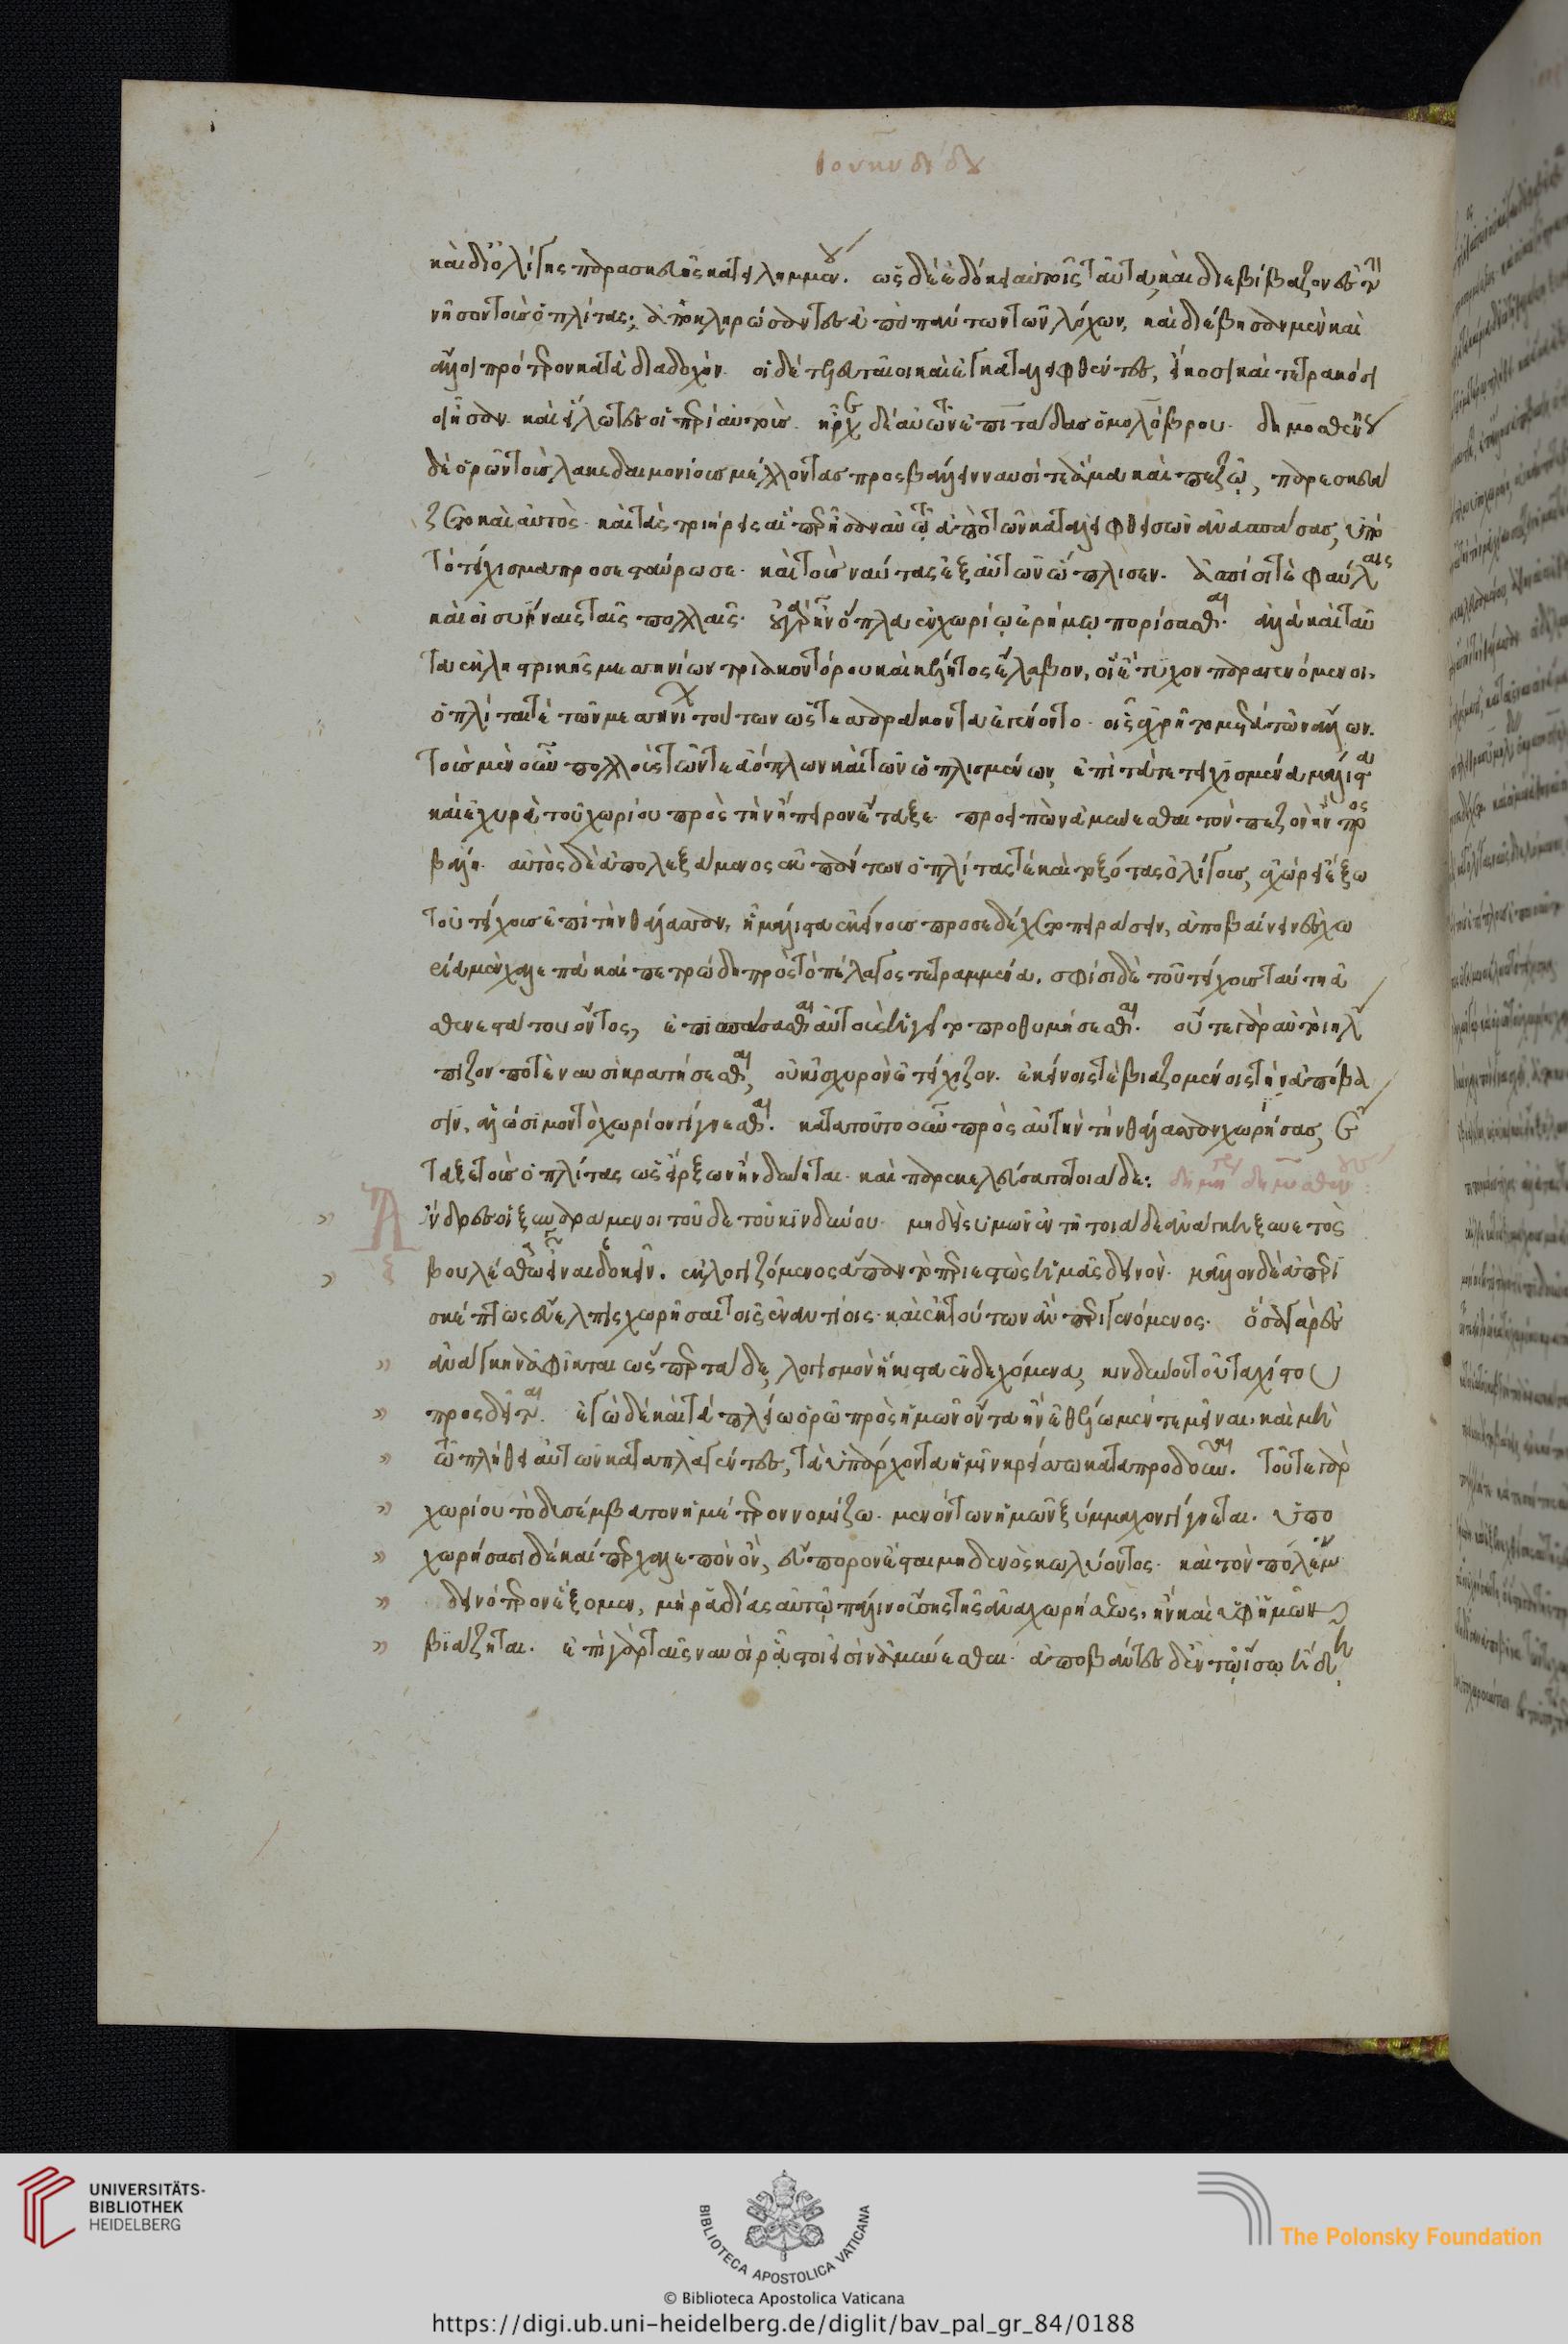 θουκυδίδου
καὶ δι' ὀλίγης παρασκευῆς κατειλημμένου. ὡς δὲ ἐδόκει αὐτοῖς ταῦτα, καὶ διεβίβαζον ἐς τὴν
νῆσον τοὺς ὁπλίτας, ἀποκληρώσαντες ἀπὸ πάντων τῶν λόχων, καὶ διέβησαν μὲν καὶ
ἄλλοι πρότερον κατὰ διαδοχὴν. οἱ δὲ τελευταῖοι καὶ ἐγκαταλειφθέντες, εἴκοσι καὶ τετρακόσι
οι ἦσαν. καὶ εἵλωτες οἱ περὶ αὐτοὺς. ἦρχε δὲ αὐτῶν ἐπιτάδας ὁ μολόβρου. δημοσθένης
δὲ ὁρῶν τοὺς λακεδαιμονίους μέλλοντας προσβάλλειν ναυσί τε ἅμα καὶ πεζῷ, παρεσκευά
ζετο καὶ αὐτὸς. καὶ τὰς τριήρεις αἳ περιῆσαν αὐτῷ ἀπὸ τῶν καταλειφθεισῶν ἀνασπάσας, ὑπὸ
τὸ τείχισμα προσεσταύρωσε. καὶ τοὺς ναύτας ἐξ αὐτῶν ὥπλισεν. ἀσπίσί τε φαύλαις
καὶ οἰσυΐναις ταῖς πολλαῖς. οὐ γὰρ ἦν ὅπλα ἐν χωρίῳ ἐρήμῳ πορίσασθαι. ἀλλὰ καὶ ταῦ
τα ἐκ ληστρικῆς μεσσηνίων τριακοντόρου καὶ κέλητος ἔλαβον, οἳ ἔτυχον παραγενόμενοι.
ὁπλῖταί τε τῶν μεσσηνίων τούτων ὡς τεσσαράκοντα ἐγένοντο. οἷς ἐχρῆτο μετὰ τῶν ἄλλων.
τοὺς μὲν οὖν πολλοὺς τῶν τε ἀόπλων καὶ τῶν ὡπλισμένων, ἐπὶ τὰ τετειχισμένα μάλιστα
καὶ ἐχυρὰ τοῦ χωρίου πρὸς τὴν ἤπειρον ἔταξε. προειπὼν ἀμύνεσθαι τὸν πεζὸν ἢν προσ
βάλῃ. αὐτὸς δὲ ἀπολεξάμενος ἐκ πάντων ὁπλίτας τέ καὶ τοξότας ὀλίγους, ἐχώρει ἔξω
τοῦ τείχους ἐπὶ τὴν θάλασσαν, ᾗ μάλιστα ἐκείνους προσεδέχετο πειράσειν, ἀποβαίνειν ἐς χω
ρία μὲν χαλεπὰ καὶ πετρώδη πρὸς τὸ πέλαγος τετραμμένα, σφίσι δὲ τοῦ τείχους ταύτῃ ἀ
σθενεστάτου ὄντος, ἐπισπάσασθαι αὐτοὺς ἡγεῖτο προθυμήσεσθαι. οὔτε γὰρ αὐτοὶ ἐλ
πίζον ποτὲ ναυσὶ κρατήσεσθαι, οὐκ ἰσχυρὸν ἐτείχιζον. ἐκείνοις τὲ βιαζομένοις τὴν ἀπόβα
σιν, ἁλώσιμον τὸ χωρίον γίγνεσθαι. κατὰ τοῦτο οὖν πρὸς αὐτὴν τὴν θάλασσαν χωρήσας, ἔ
ταξε τοὺς ὁπλίτας ὡς εἴρξων ἢν δύνηται. καὶ παρεκελεύσατο τοιάδε:
Ἄνδρες οἱ ξυναράμενοι τοῦδε τοῦ κινδύνου. μηδεὶς ὑμῶν ἐν τῇ τοιᾷδε ἀνάγκῃ ξυνετὸς
βουλέσθω εἶναι δοκεῖν. ἐκλογιζόμενος ἅπαν τὸ περιεστὼς ἡμᾶς δεινὸν. μᾶλλον δὲ ἀπερι
σκέπτως εὔελπις χωρῆσαι τοῖς ἐναντίοις. καὶ ἐκ τούτων ἂν περιγενόμενος. ὅσα γὰρ ἐς
ἀνάγκην ἀφῖκται ὥσπερ τάδε, λογισμὸν ἥκιστα ἐνδεχόμενα, κινδύνου τοῦ ταχίστου
προσδεῖται. ἐγὼ δὲ καὶ τὰ πλείω ὁρῶ πρὸς ἡμῶν ὄντα ἢν ἐθέλωμέν τε μεῖναι. καὶ μὴ
τῷ πλήθει αὐτῶν καταπλαγέντες, τὰ ὑπάρχοντα ἡμῖν κρείσσω καταπροδοῦναι. τοῦ τε γὰρ
χωρίου τὸ δυσέμβατον ἡμέτερον νομίζω. μενόντων ἡμῶν ξύμμαχον γίγνεται. ὑπο
χωρήσασι δὲ καίπερ χαλεπὸν ὂν, εὔπορον ἔσται μηδενὸς κωλύοντος. καὶ τὸν πόλεμιον
δεινότερον ἕξομεν, μὴ ῥᾳδίας αὐτῷ πάλιν οὔσης τῆς ἀναχωρήσεως, ἢν καὶ ὑφ' ἡμῶν
βιάζηται. ἐπὶ γὰρ ταῖς ναυσὶ ῥᾷστοί εἰσιν ἀμύνεσθαι. ἀποβάντες δὲ ἐν τῷ ἴσῳ ἤδη
UNIVERSITÄTS-
BIBLIOTHEK
HEIDELBERG
BIBLIOTECA APOSTOLICA VATICANA
The Polonsky Foundation
© Biblioteca Apostolica Vaticana
https://digi.ub.uni-heidelberg.de/diglit/bav_pal_gr_84/0188